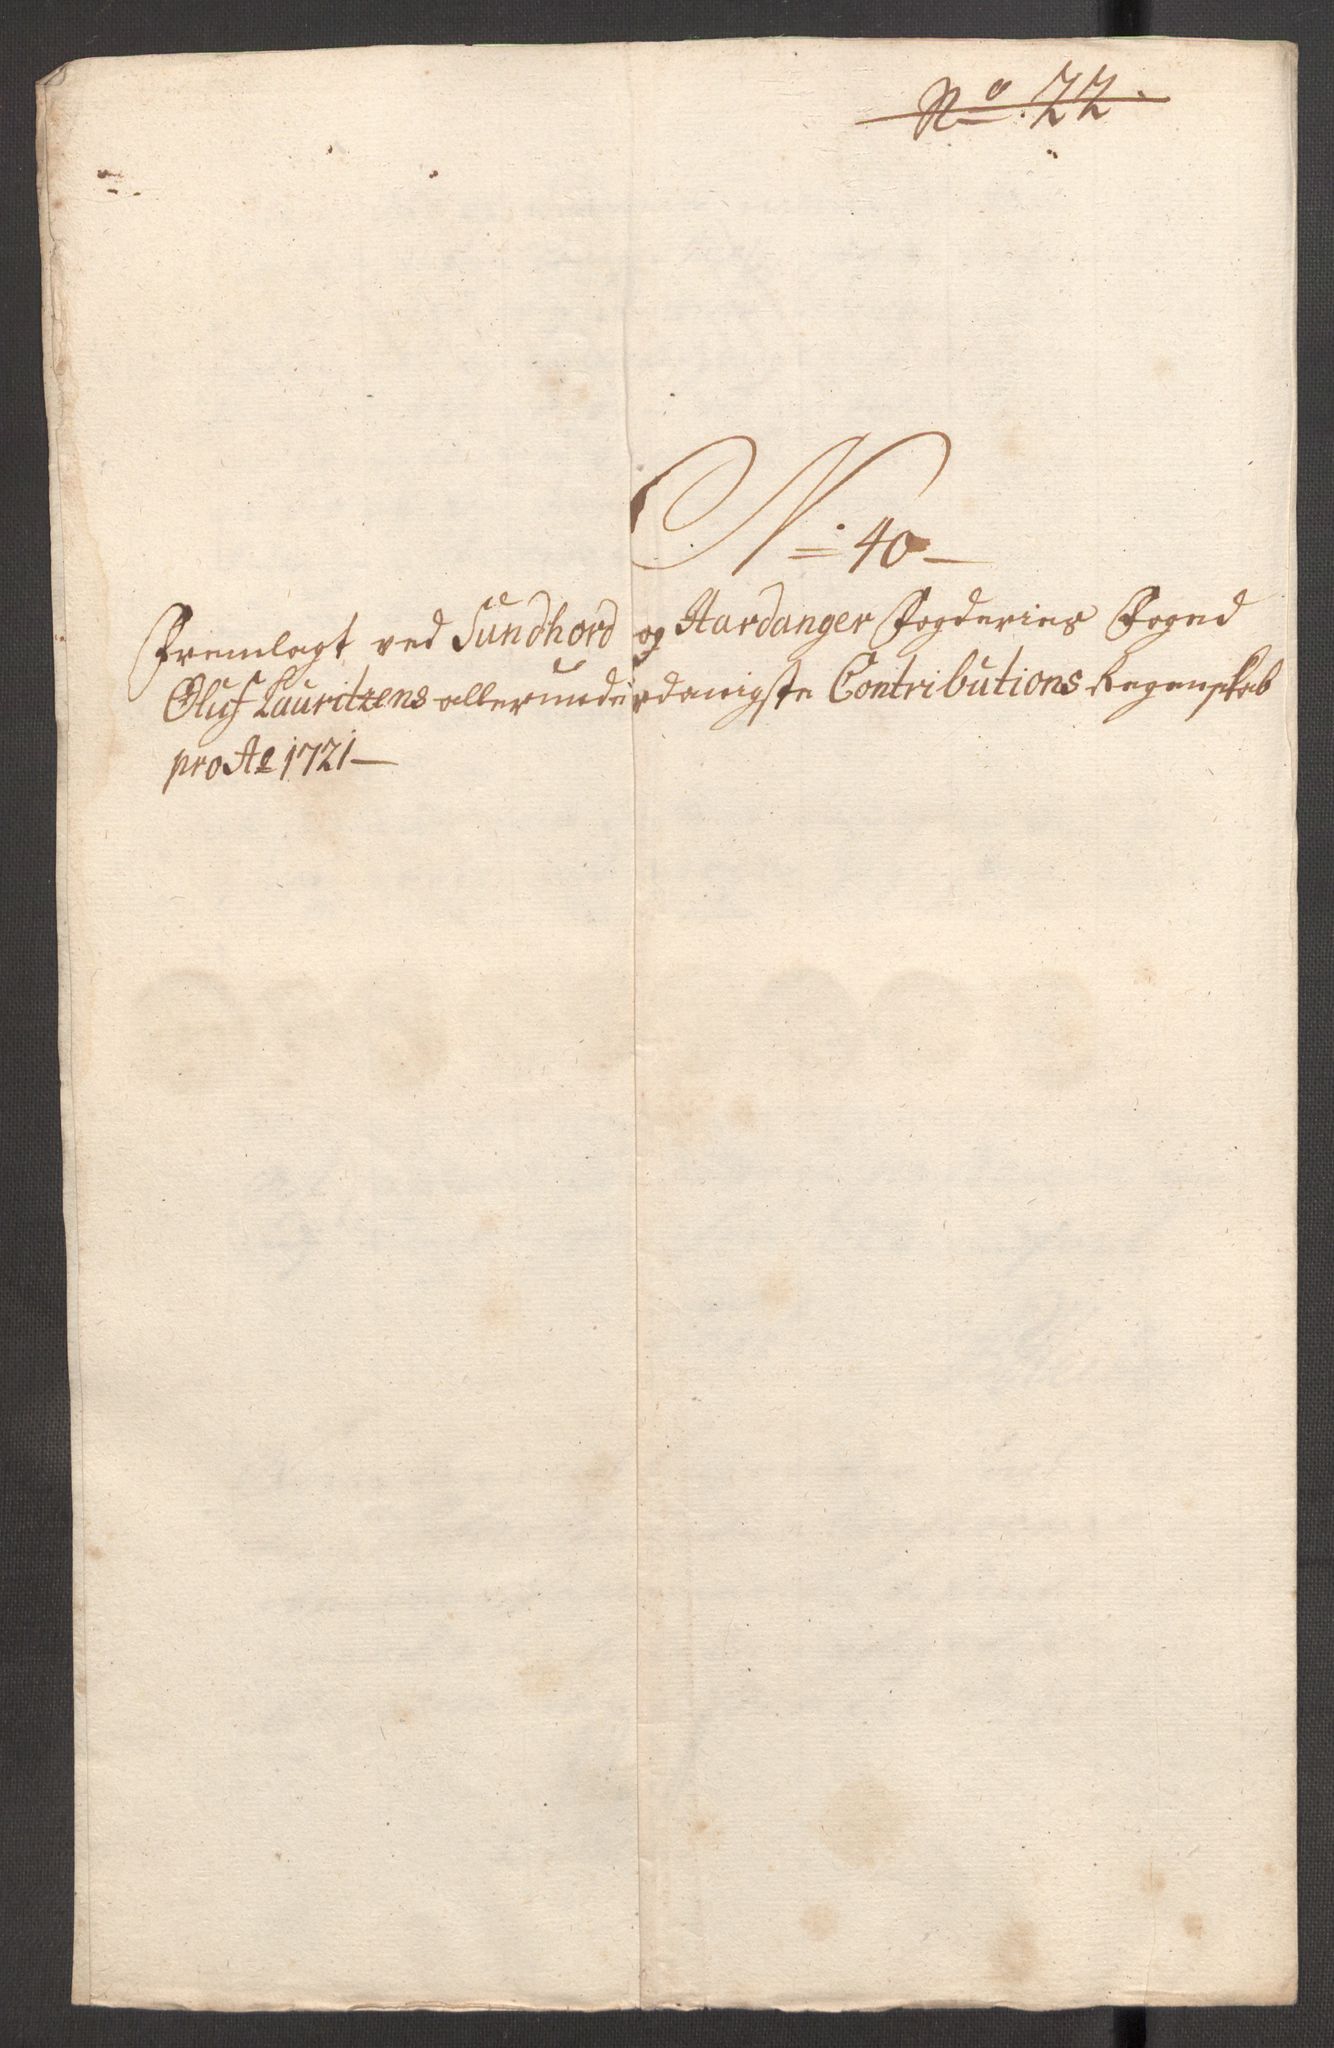 No. 22.
N. 40
Fremlagt ved Sundhord og Hardanger Fogderies Foged
Oluf Lauritzens allerunderdanigste Contributions Regenskab
pro Ao 1721